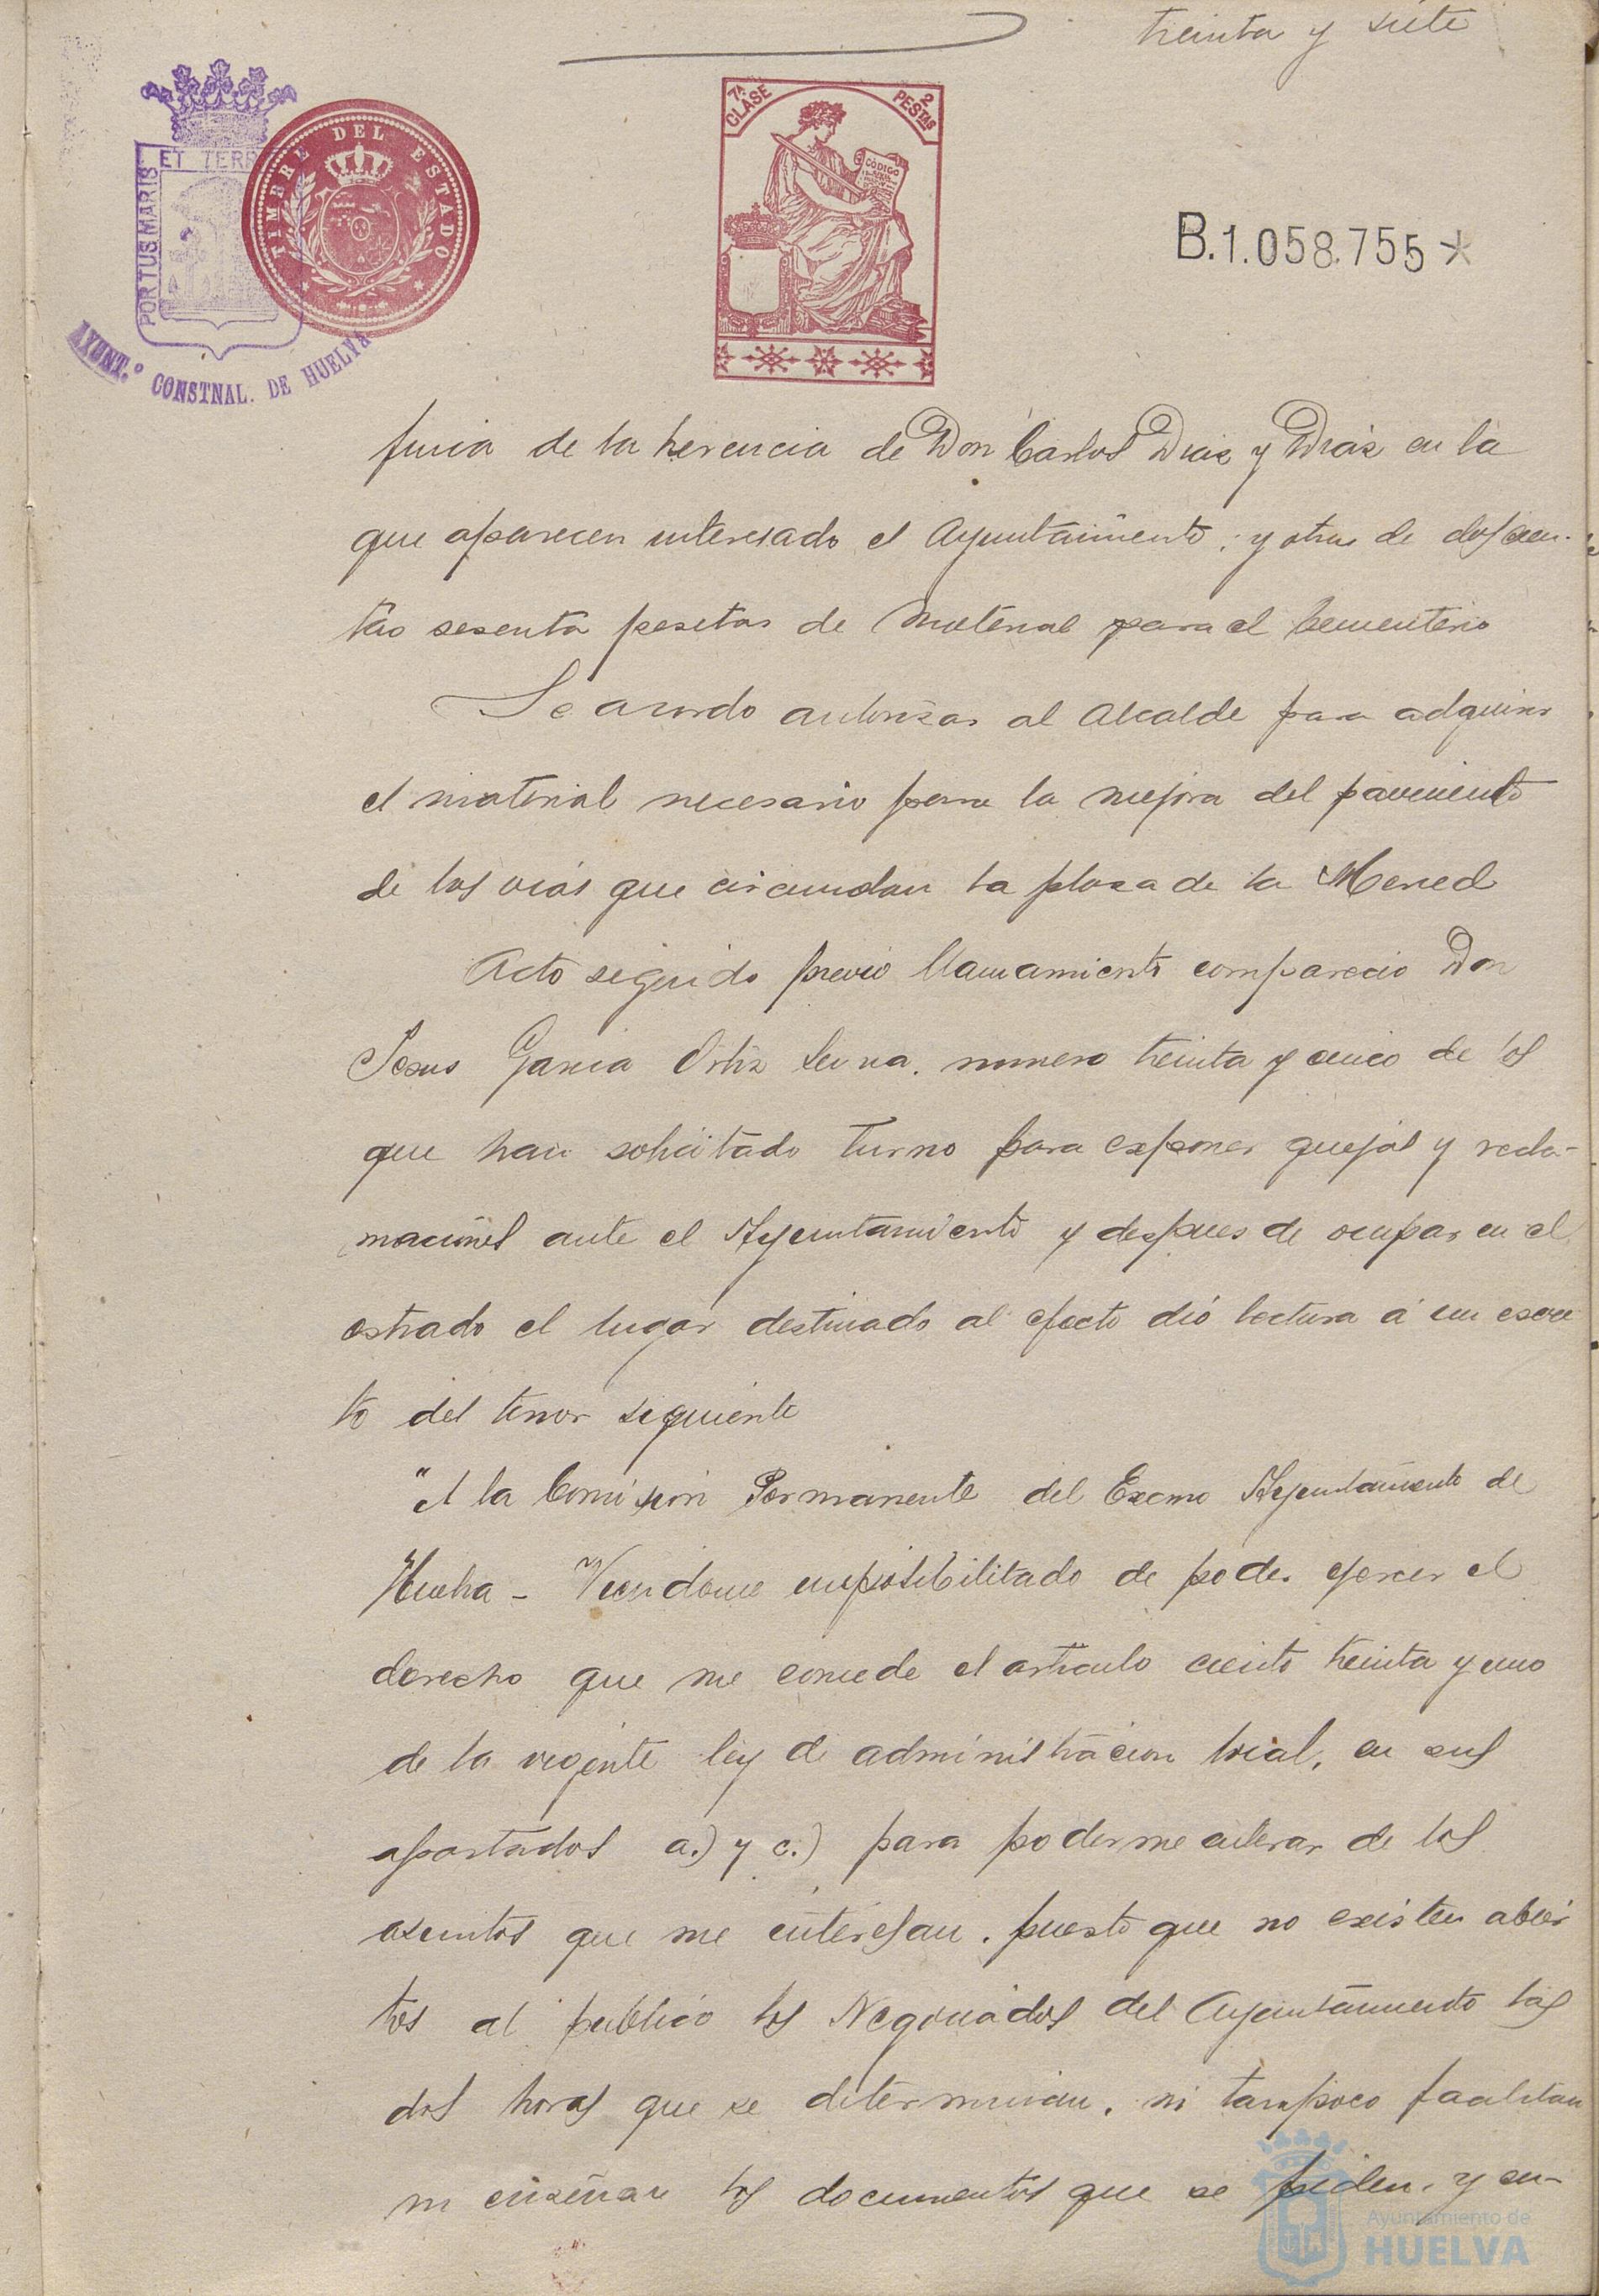 treinta y siete
7ª CLASE
2 PESTAS
CÓDIGO
TIMBRE DEL ESTADO
PORTUS MARIS ET TERR
AYUNT.º CONSTNAL. DE HUELVA
B.1.058.755*
de la herencia de Don Carlos Diaz y Diáz en la
que aparecen interesado el Ayuntamiento; y otra de doscien-
tas sesenta pesetas de material para el Cementerio
Se acordo autorizar al Alcalde para adquirir
el material necesario para la mejora del pavimento
de las vias que circundan la plaza de la Merced
Acto seguido previo llamamiento comparecio Don
Jesus Garcia Ortiz numero treinta y cinco de los
que han solicitado turno para exponer quejas y recla-
maciones ante el Ayuntamiento y despues de ocupar en el
estrado el lugar destinado al efecto dió lectura á un escri
to del tenor siguiente
"A la Comision Permanente del Excmo Ayuntamiento de
Huelva - Viendome imposibilitado de poder ejercer el
derecho que me concede el articulo ciento treinta y uno
de la vigente ley de administracion local, en sus
apartados a.) y c.) para poderme enterar de los
asuntos que me interesan, puesto que no existen abier
tos al publico los Negociados del Ayuntamiento las
dos horas que se determinan, ni tampoco facilitan
ni enseñan los documentos que se piden, y en-
Ayuntamiento de
HUELVA